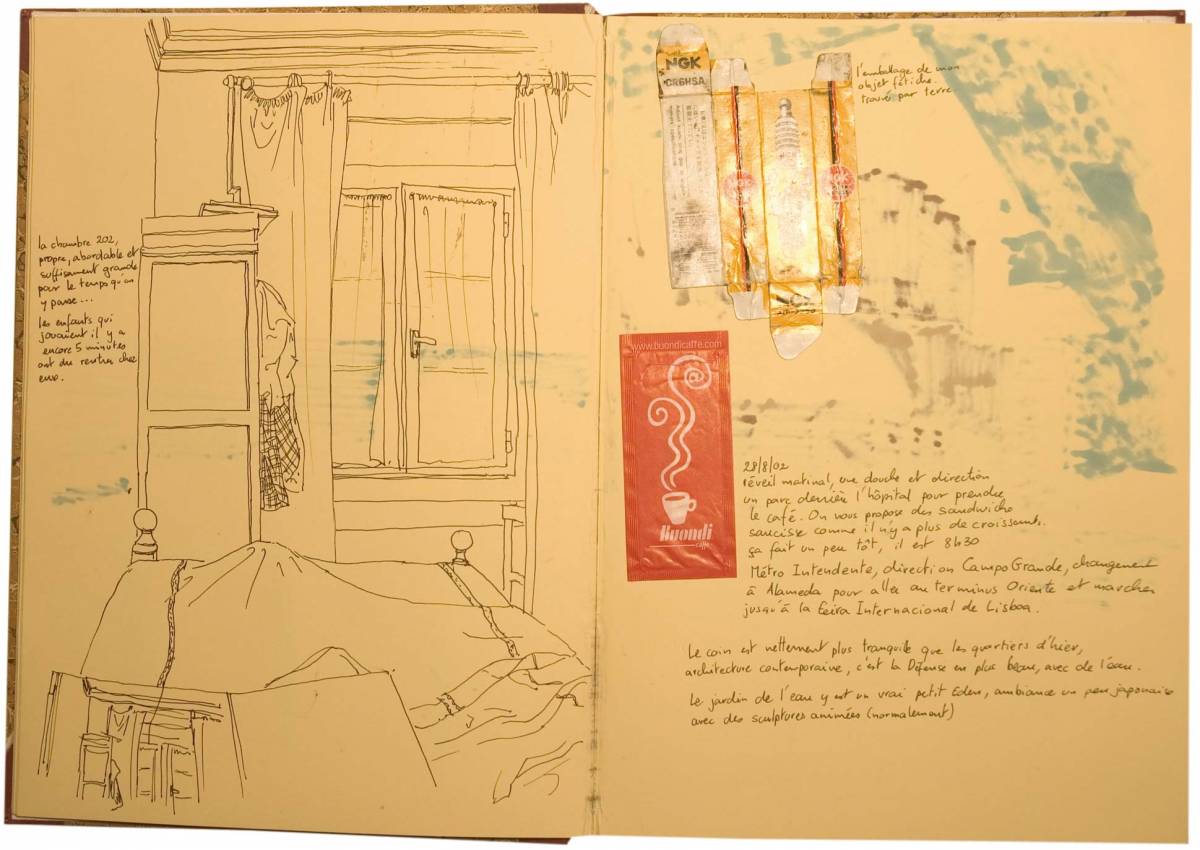 la chambre 202,
propre, abordable et
suffisament grande
pour le temps qu'on
y passe...
les enfants qui
jouaient il y a
encore 5 minutes
ont du rentrer chez
eux.
NGK
CR6HSA
NGK
NGK
l'emballage de mon
objet fétiche.
trouvé par terre
www.buondicaffe.com
Buondi
caffè
28/8/02
réveil matinal, une douche et direction
un parc derrière l'hôpital pour prendre
le café. On nous propose des sandwichs
saucisse comme il n'y a plus de croissants.
ça fait un peu tôt, il est 8h30
Métro Intendente, direction Campo Grande, changement
à Alameda pour aller au terminus Oriente et marcher
jusqu'à la Feira Internacional de Lisboa.
Le coin est nettement plus tranquile que les quartiers d'hier,
architecture contemporaine, c'est la Défense en plus beau, avec de l'eau.
Le jardin de l'eau y est un vrai petit Eden, ambiance un peu japonaise
avec des sculptures animées (normalement)